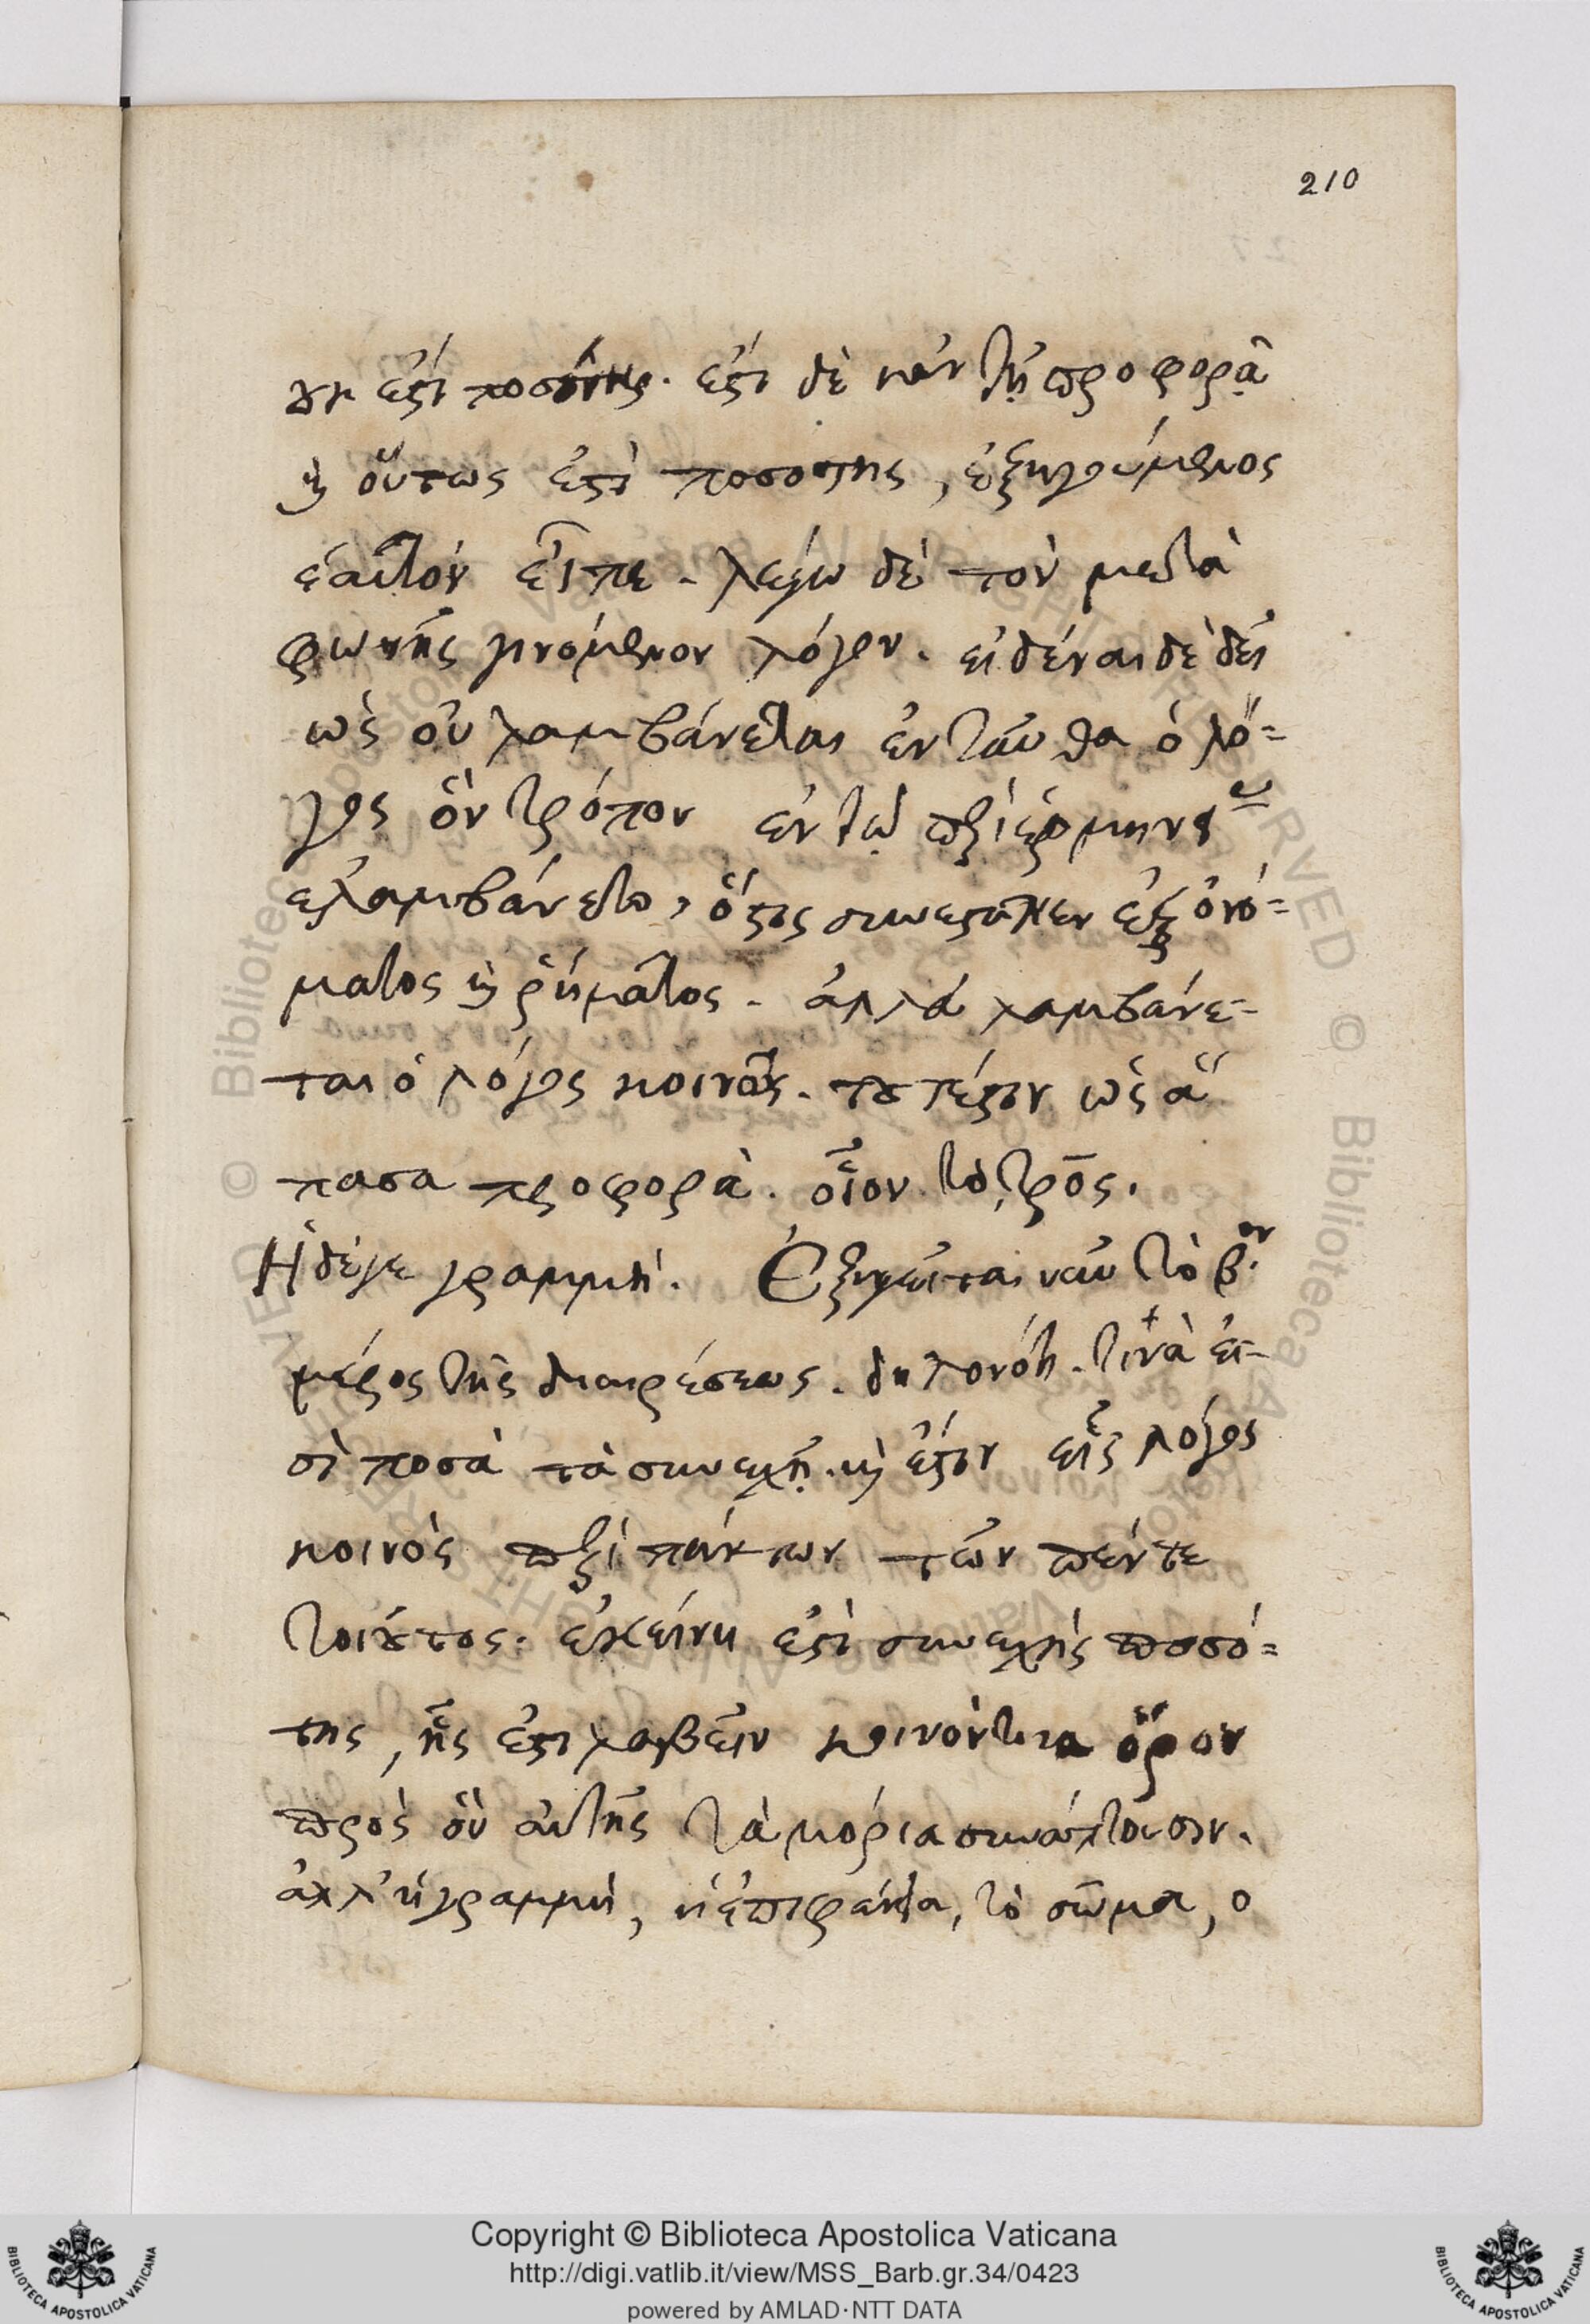 210
οὐκ ἐστὶ ποσότης. ἐστὶ δὲ κἀν τῇ προφορᾷ
καὶ οὕτως ἐστὶ ποσότης, ἐξηγούμενος
ἑαυτὸν εἶπε. λέγω δὲ τὸν μετὰ
φωνῆς γινόμενον λόγον. εἰδέναι δὲ δεῖ
ὡς οὐ λαμβάνεται ἐνταῦθα ὁ λό=
γος ὃν τρόπον ἐν τῷ περὶ ἑρμηνεί
ἐλαμβάνετο, ὅστις συνέστηκεν ἐξ ὀνό=
ματος καὶ ῥήματος. ἀλλὰ λαμβάνε-
ται ὁ λόγος κοινῶς. τουτέστιν ὡς ἅ
πασα προφορὰ. οἷον τὸ, τρὸς.
Ἡ δέ γε γραμμή. Ἐξηγεῖται νῦν τὸ β.ον
μέρος τῆς διαιρέσεως. δηλονότι. τίνα εἰ-
σὶ ποσὰ τὰ συνεχῆ. καὶ ἔστιν εἷς λόγος
κοινὸς περὶ πάντων τῶν πέντε
τοιοῦτος. ἐκείνη ἐστὶ συνεχὴς ποσό=
της, ἧς ἔστι λαβεῖν κοινόν τινα ὅρον
πρὸς ὃν αὐτῆς τὰ μόρια συνάπτουσιν.
ἀλλ' ἡ γραμμή, ἡ ἐπιφάνεια, τὸ σῶμα, ὁ
Copyright © Biblioteca Apostolica Vaticana
http://digi.vatlib.it/view/MSS_Barb.gr.34/0423
powered by AMLAD·NTT DATA